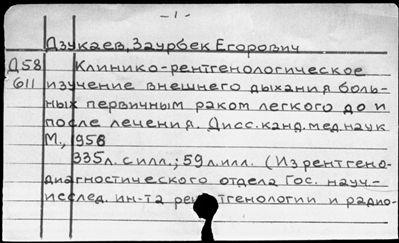 - 1 -
Дзукаев, Заурбек Егорович
Д58 Клинико-рентгенологическое
611 изучение внешнего дыхания боль-
ных первичным раком легкого до и
после лечения. Дисс. канд. мед. наук
М., 1956
335л. с илл.; 59 л. илл. (Из рентгено-
диагностического отдела Гос. науч.-
исслед. ин-та рентгенологии и радио-